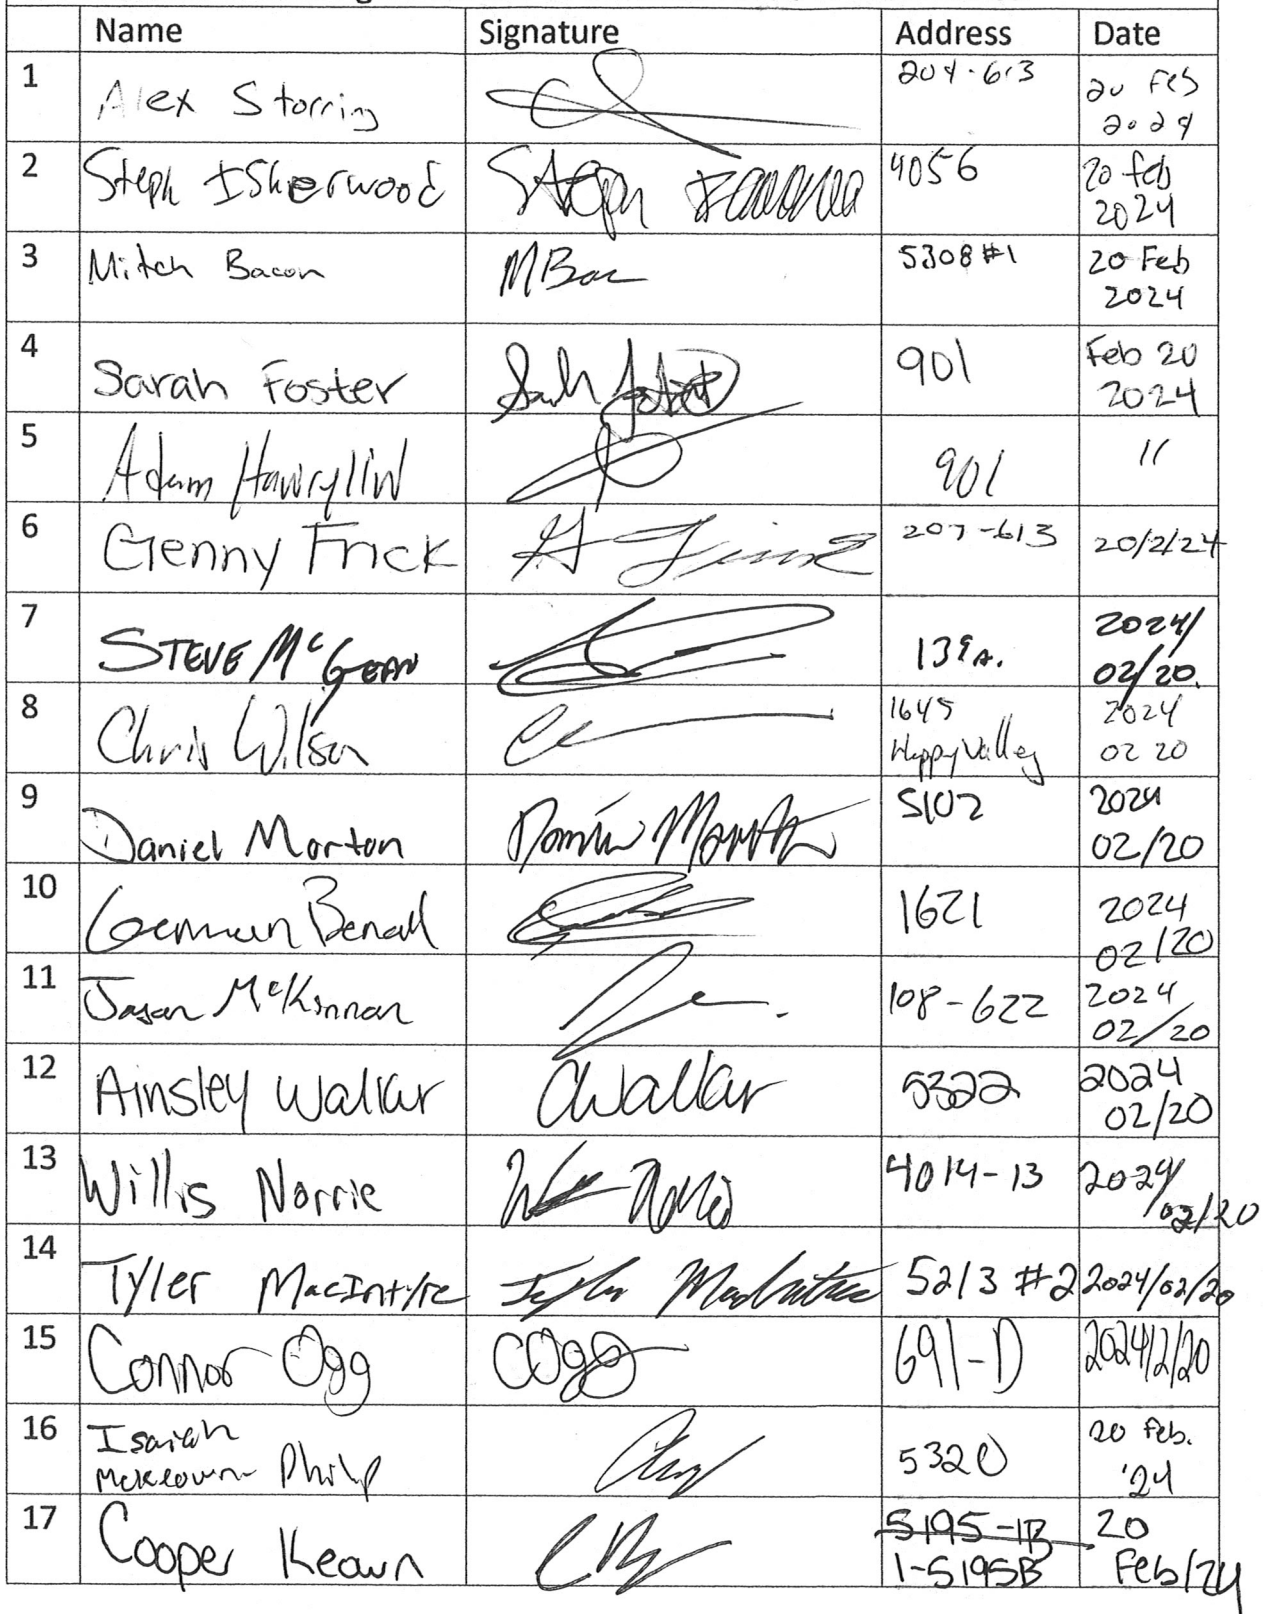 Name Signature Address Date
1 Alex Storring 204-613 20 Feb 2024
2 Steph Isherwood 4056 20 feb 2024
3 Mitch Bacon MBac 5308 #1 20 Feb 2024
4 Sarah Foster 901 Feb 20 2024
5 Adam 901 "
6 Genny Frick 207-613 20/2/24
7 STEVE McGEAN 139A. 2024/02/20.
8 Chris Wilson 1645 Happy Valley 2024 02 20
9 Daniel Morton 5102 2024 02/20
10 1621 2024 02/20
11 Jason McKinnon 108-622 2024 02/20
12 Ainsley Wallar aWallar 5322 2024 02/20
13 Willis Norrie 4014-13 2024/02/20
14 Tyler MacIntyre 5213 #2 2024/02/20
15 Connor Ogg COgg 691-D 2024/2/20
16 Isaiah McKeown Philp 5320 20 Feb. '24
17 Cooper Keown 5195-1B 1-5195B 20 Feb/24